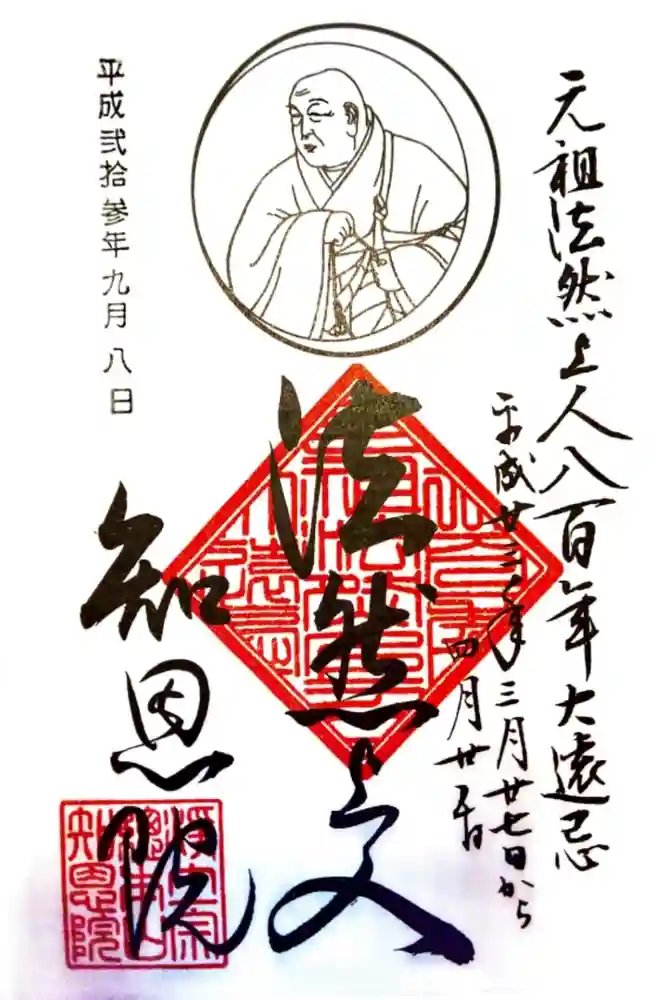 元祖法然上人八百年大遠忌
平成廿三年三月廿七日から
四月廿五日
法然上人
平成弐拾参年九月八日
知恩院
浄土宗
総本山
知恩院